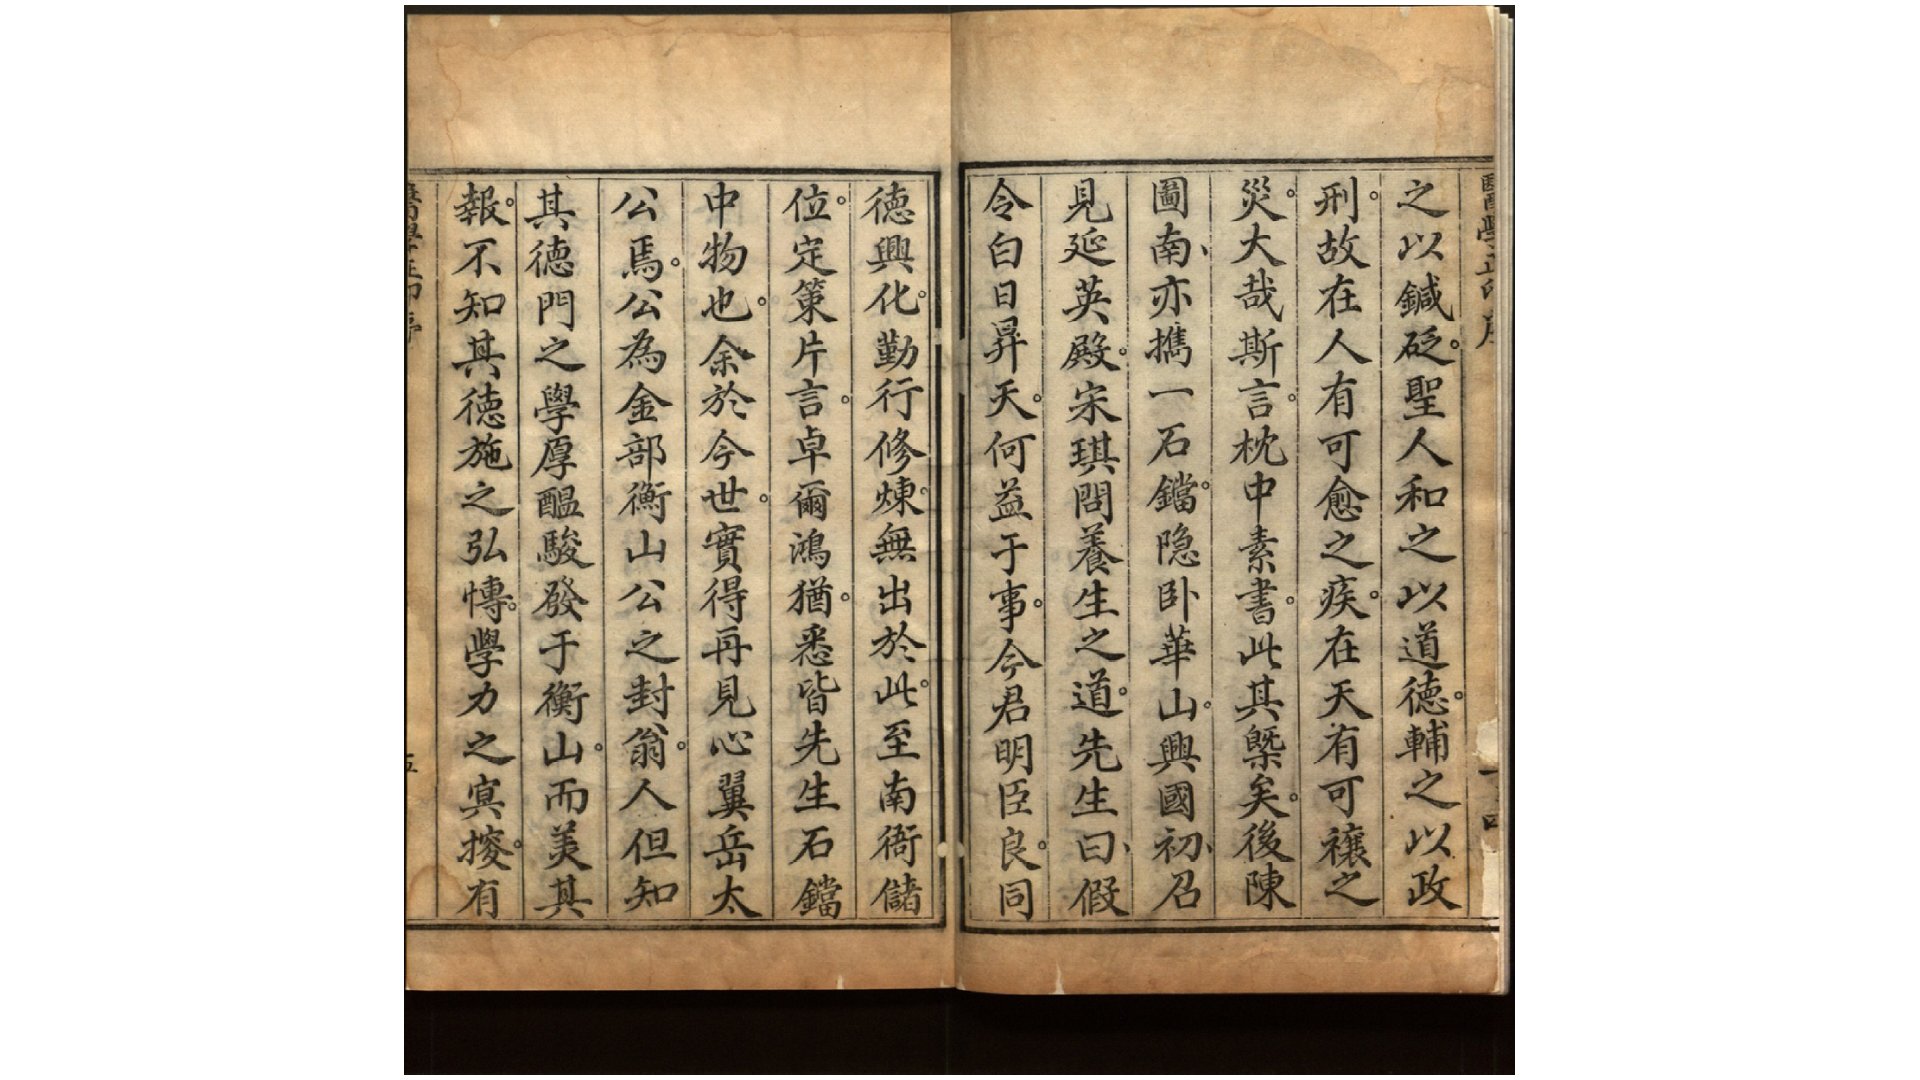 之以鍼砭。聖人和之以道德。輔之以政
刑。故在人有可愈之疾。在天有可禳之
災。大哉斯言。枕中素書。此其槩矣。後陳
圖南、亦攜一石鐺。隐卧華山。興國初、召
見延英殿。宋琪問養生之道。先生曰、假
令白日昇天。何益于事。今君明臣良。同
德興化。勤行修煉。無出於此。至南衙儲
位。定策片言。卓爾鴻猶。悉皆先生石鐺
中物也。余於今世。實得再見心翼岳太
公焉。公為金部衡山公之封翁。人但知
其德門之學厚醞駿發于衡山。而美其
報。不知其德施之弘愽。學力之寘掞。有